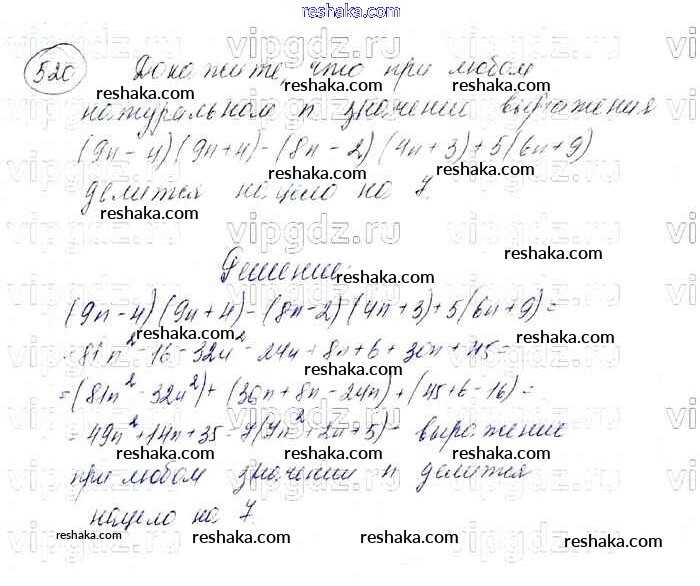 520 Докажите, что при любом
натуральном n значение выражения
(9n-4)(9n+4)-(8n-2)(4n+3)+5(6n+9)
делится нацело на 7.
Решение:
(9n-4)(9n+4)-(8n-2)(4n+3)+5(6n+9)=
=81n²-16-32n²-24n+8n+6+30n+45=
=(81n²-32n²)+(30n+8n-24n)+(45+6-16)=
=49n²+14n+35=7(7n²+2n+5)- выражение
при любом значении n делится
нацело на 7.